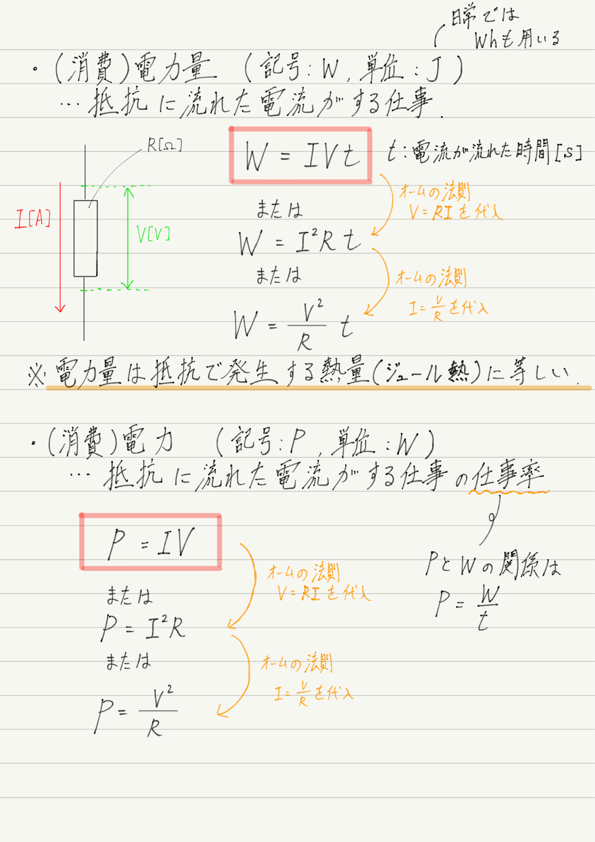 日常では
Whも用いる
・(消費)電力量 (記号:W,単位:J)
…抵抗に流れた電流がする仕事.
R[Ω]
I[A]
V[V]
W = IVt
t:電流が流れた時間[s]
オームの法則
V=RIを代入
または
W = I²Rt
または
オームの法則
I=V/Rを代入
W = V²/R t
※電力量は抵抗で発生する熱量(ジュール熱)に等しい.
・(消費)電力 (記号:P,単位:W)
…抵抗に流れた電流がする仕事の仕事率
P = IV
オームの法則
V=RIを代入
または
P = I²R
または
オームの法則
I=V/Rを代入
P = V²/R
PとWの関係は
P = W/t